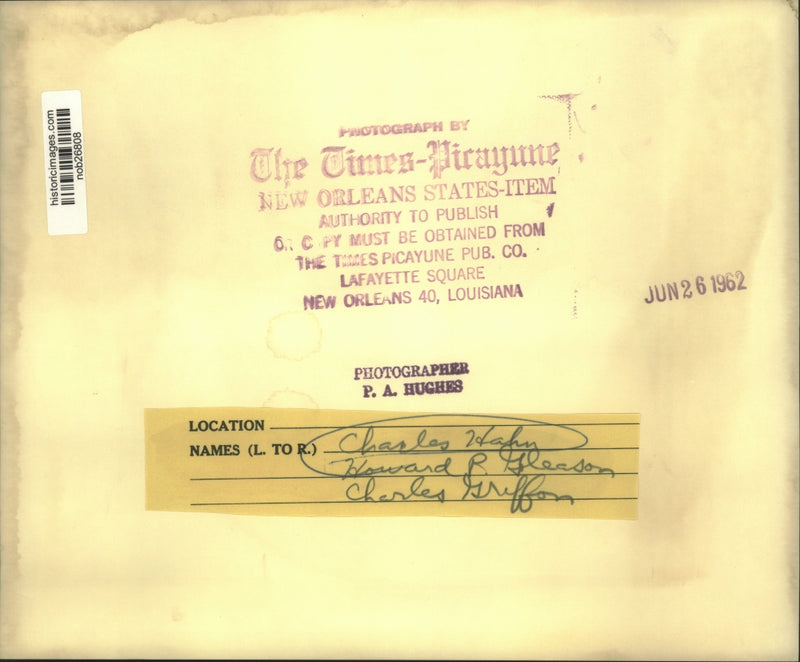 historicimages.com
nob26808
PHOTOGRAPH BY
The Times-Picayune
NEW ORLEANS STATES-ITEM
AUTHORITY TO PUBLISH
OR C PY MUST BE OBTAINED FROM
THE TIMES PICAYUNE PUB. CO.
LAFAYETTE SQUARE
NEW ORLEANS 40, LOUISIANA
JUN 26 1962
PHOTOGRAPHER
P. A. HUGHES
LOCATION
NAMES (L. TO R.) Charles Hahn
Howard R. Gleason
Charles Griffon